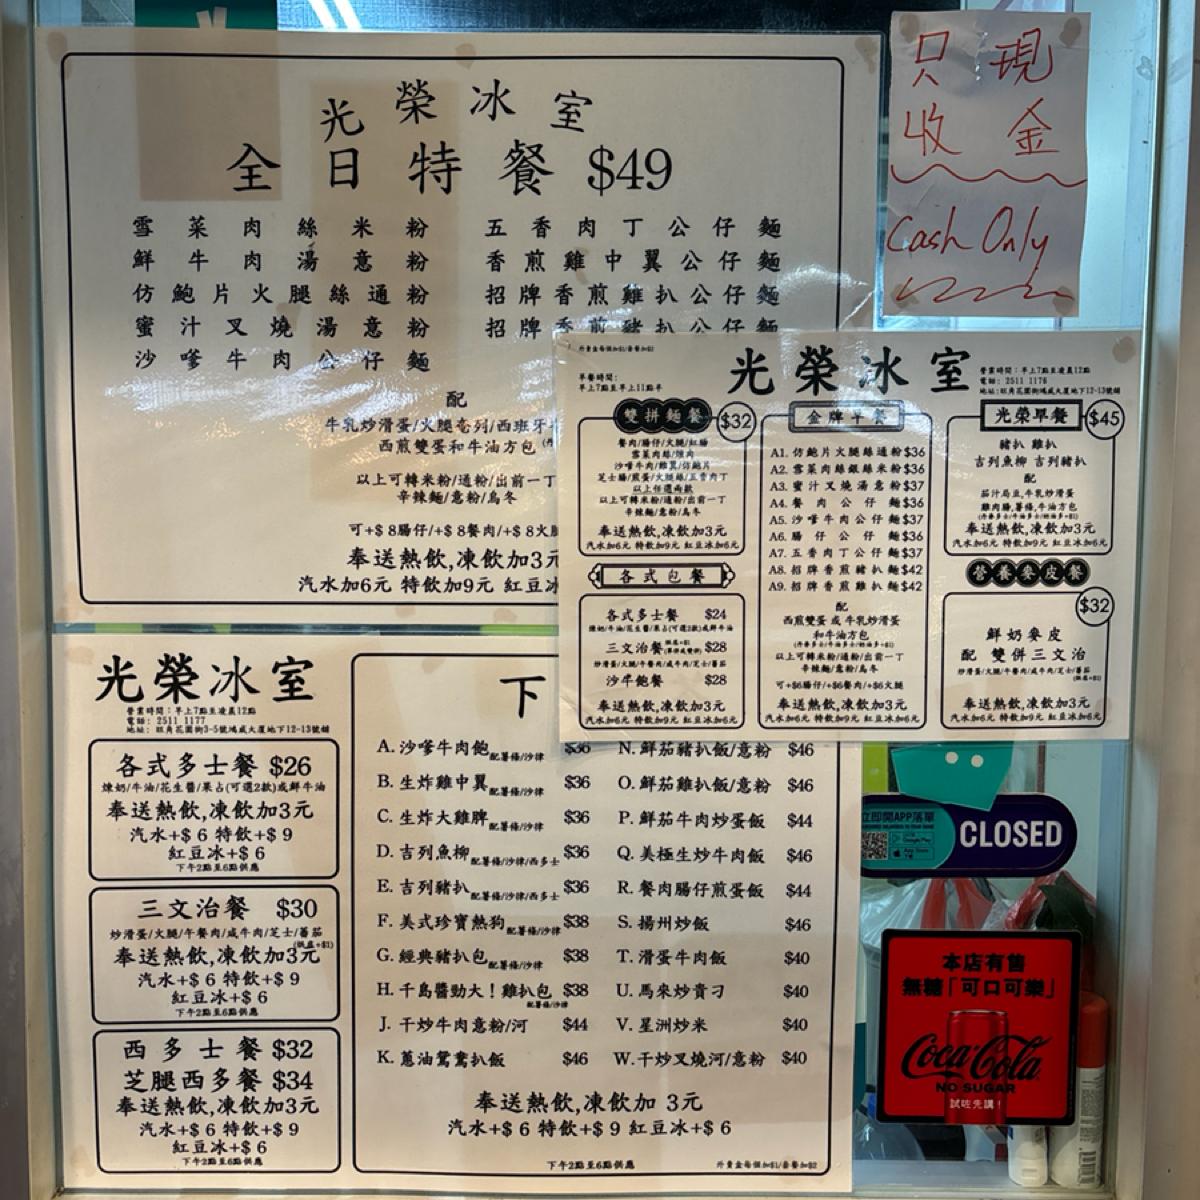 光榮冰室
全日特餐 $49
雪菜肉絲米粉
鮮牛肉湯意粉
仿鮑片火腿絲通粉
蜜汁叉燒湯意粉
沙嗲牛肉公仔麵
五香肉丁公仔麵
香煎雞中翼公仔麵
招牌香煎雞扒公仔麵
招牌香煎豬扒公仔麵
配
牛乳炒滑蛋/火腿奄列/西班牙
西煎雙蛋和牛油方包
以上可轉米粉/通粉/出前一丁
辛辣麵/意粉/烏冬
可+$8腸仔/+$8餐肉/+$8火
奉送熱飲,凍飲加3元
汽水加6元 特飲加9元 紅豆冰
只收
現金
Cash Only
外賣盒每個加$1/套餐加$2
早餐時間:
早上7點至早上11點半
光榮冰室
營業時間:早上7點至凌晨12點
電話: 2511 1176
地址:旺角花園街鴻威大廈地下12-13號舖
雙拼麵餐 $32
餐肉/腸仔/火腿/紅腸
雪菜肉絲/燒肉
沙嗲牛肉/雞翼/仿鮑片
芝士腸/煎蛋/火腿絲/五香肉丁
以上任選兩款
以上可轉米粉/通粉/出前一丁
辛辣麵/意粉/烏冬
奉送熱飲,凍飲加3元
汽水加6元 特飲加9元 紅豆冰加6元
各式包餐
各式多士餐 $24
煉奶/牛油/花生醬/果占(可選2款)或鮮牛油
三文治餐 $28
沙嗲飽餐 $28
奉送熱飲,凍飲加3元
汽水加6元 特飲加9元 紅豆冰加6元
金牌早餐
A1. 仿鮑片火腿絲通粉 $36
A2. 雪菜肉絲銀絲米粉 $36
A3. 蜜汁叉燒湯意粉 $37
A4. 餐肉公仔麵 $36
A5. 沙嗲牛肉公仔麵 $37
A6. 腸仔公仔麵 $36
A7. 五香肉丁公仔麵 $37
A8. 招牌香煎豬扒麵 $42
A9. 招牌香煎雞扒麵 $42
配
西煎雙蛋 或 牛乳炒滑蛋
和牛油方包
(丹麥多士/牛油多士/奶油多+$1)
以上可轉米粉/通粉/出前一丁
辛辣麵/意粉/烏冬
可+$6腸仔/+$6餐肉/+$6火腿
奉送熱飲,凍飲加3元
汽水加6元 特飲加9元 紅豆冰加6元
光榮早餐 $45
豬扒 雞扒
吉列魚柳 吉列豬扒
配
茄汁焗豆,牛乳炒滑蛋
雞肉腸,薯條,牛油方包
(丹麥多士/牛油多士/奶油多+$1)
奉送熱飲,凍飲加3元
汽水加6元 特飲加9元 紅豆冰加6元
營養麥皮餐
$32
鮮奶麥皮
配 雙併三文治
炒滑蛋/火腿/午餐肉/咸牛肉/芝士/蕃茄
(飛底+$1)
奉送熱飲,凍飲加3元
汽水加6元 特飲加9元 紅豆冰加6元
光榮冰室
營業時間:早上7點至凌晨12點
電話: 2511 1177
地址: 旺角花園街3-5號鴻威大廈地下12-13號舖
各式多士餐 $26
煉奶/牛油/花生醬/果占(可選2款)或鮮牛油
奉送熱飲,凍飲加3元
汽水+$6 特飲+$9
紅豆冰+$6
下午2點至6點供應
三文治餐 $30
炒滑蛋/火腿/午餐肉/咸牛肉/芝士/蕃茄
(飛底+$1)
奉送熱飲,凍飲加3元
汽水+$6 特飲+$9
紅豆冰+$6
下午2點至6點供應
西多士餐 $32
芝腿西多餐 $34
奉送熱飲,凍飲加3元
汽水+$6 特飲+$9
紅豆冰+$6
下午2點至6點供應
下
A. 沙嗲牛肉飽 配薯條/沙律 $36
B. 生炸雞中翼 配薯條/沙律 $36
C. 生炸大雞脾 配薯條/沙律 $36
D. 吉列魚柳 配薯條/沙律/西多士 $36
E. 吉列豬扒 配薯條/沙律/西多士 $36
F. 美式珍寶熱狗 配薯條/沙律 $38
G. 經典豬扒包 配薯條/沙律 $38
H. 千島醬勁大!雞扒包 配薯條/沙律 $38
J. 干炒牛肉意粉/河 $44
K. 蔥油鴛鴦扒飯 $46
N. 鮮茄豬扒飯/意粉 $46
O. 鮮茄雞扒飯/意粉 $46
P. 鮮茄牛肉炒蛋飯 $44
Q. 美極生炒牛肉飯 $46
R. 餐肉腸仔煎蛋飯 $44
S. 揚州炒飯 $46
T. 滑蛋牛肉飯 $40
U. 馬來炒貴刁 $40
V. 星洲炒米 $40
W. 干炒叉燒河/意粉 $40
奉送熱飲,凍飲加 3元
汽水+$6 特飲+$9 紅豆冰+$6
下午2點至6點供應
外賣盒每個加$1/套餐加$2
立即開APP落單
Google Play
App Store
CLOSED
本店有售
無糖「可口可樂」
Coca-Cola
NO SUGAR
試咗先講!